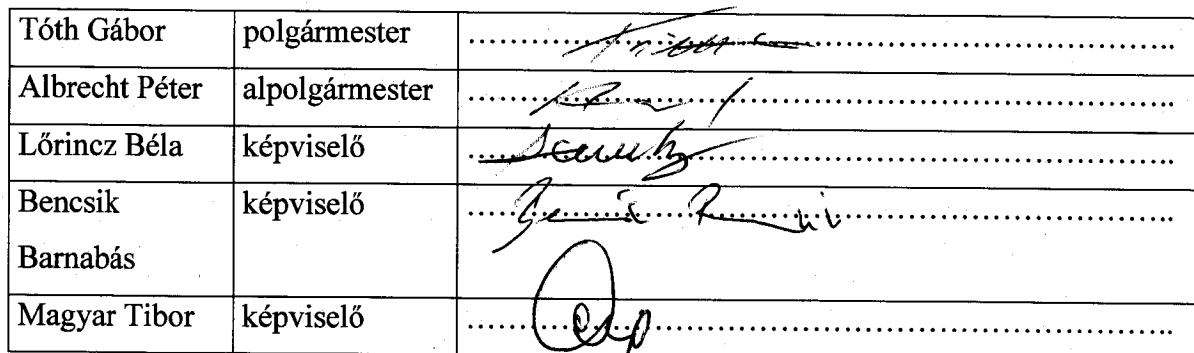 Tóth Gábor polgármester
Albrecht Péter alpolgármester
Lőrincz Béla képviselő
Bencsik képviselő
Barnabás
Magyar Tibor képviselő